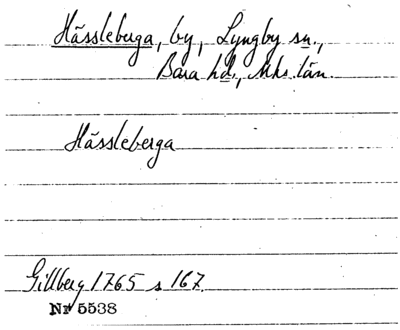 Hässleberga, by, Lyngby sn.,
Bara hd., Mhs. län.
Hässleberga
Gillberg 1765 s 167.
Nr 5538